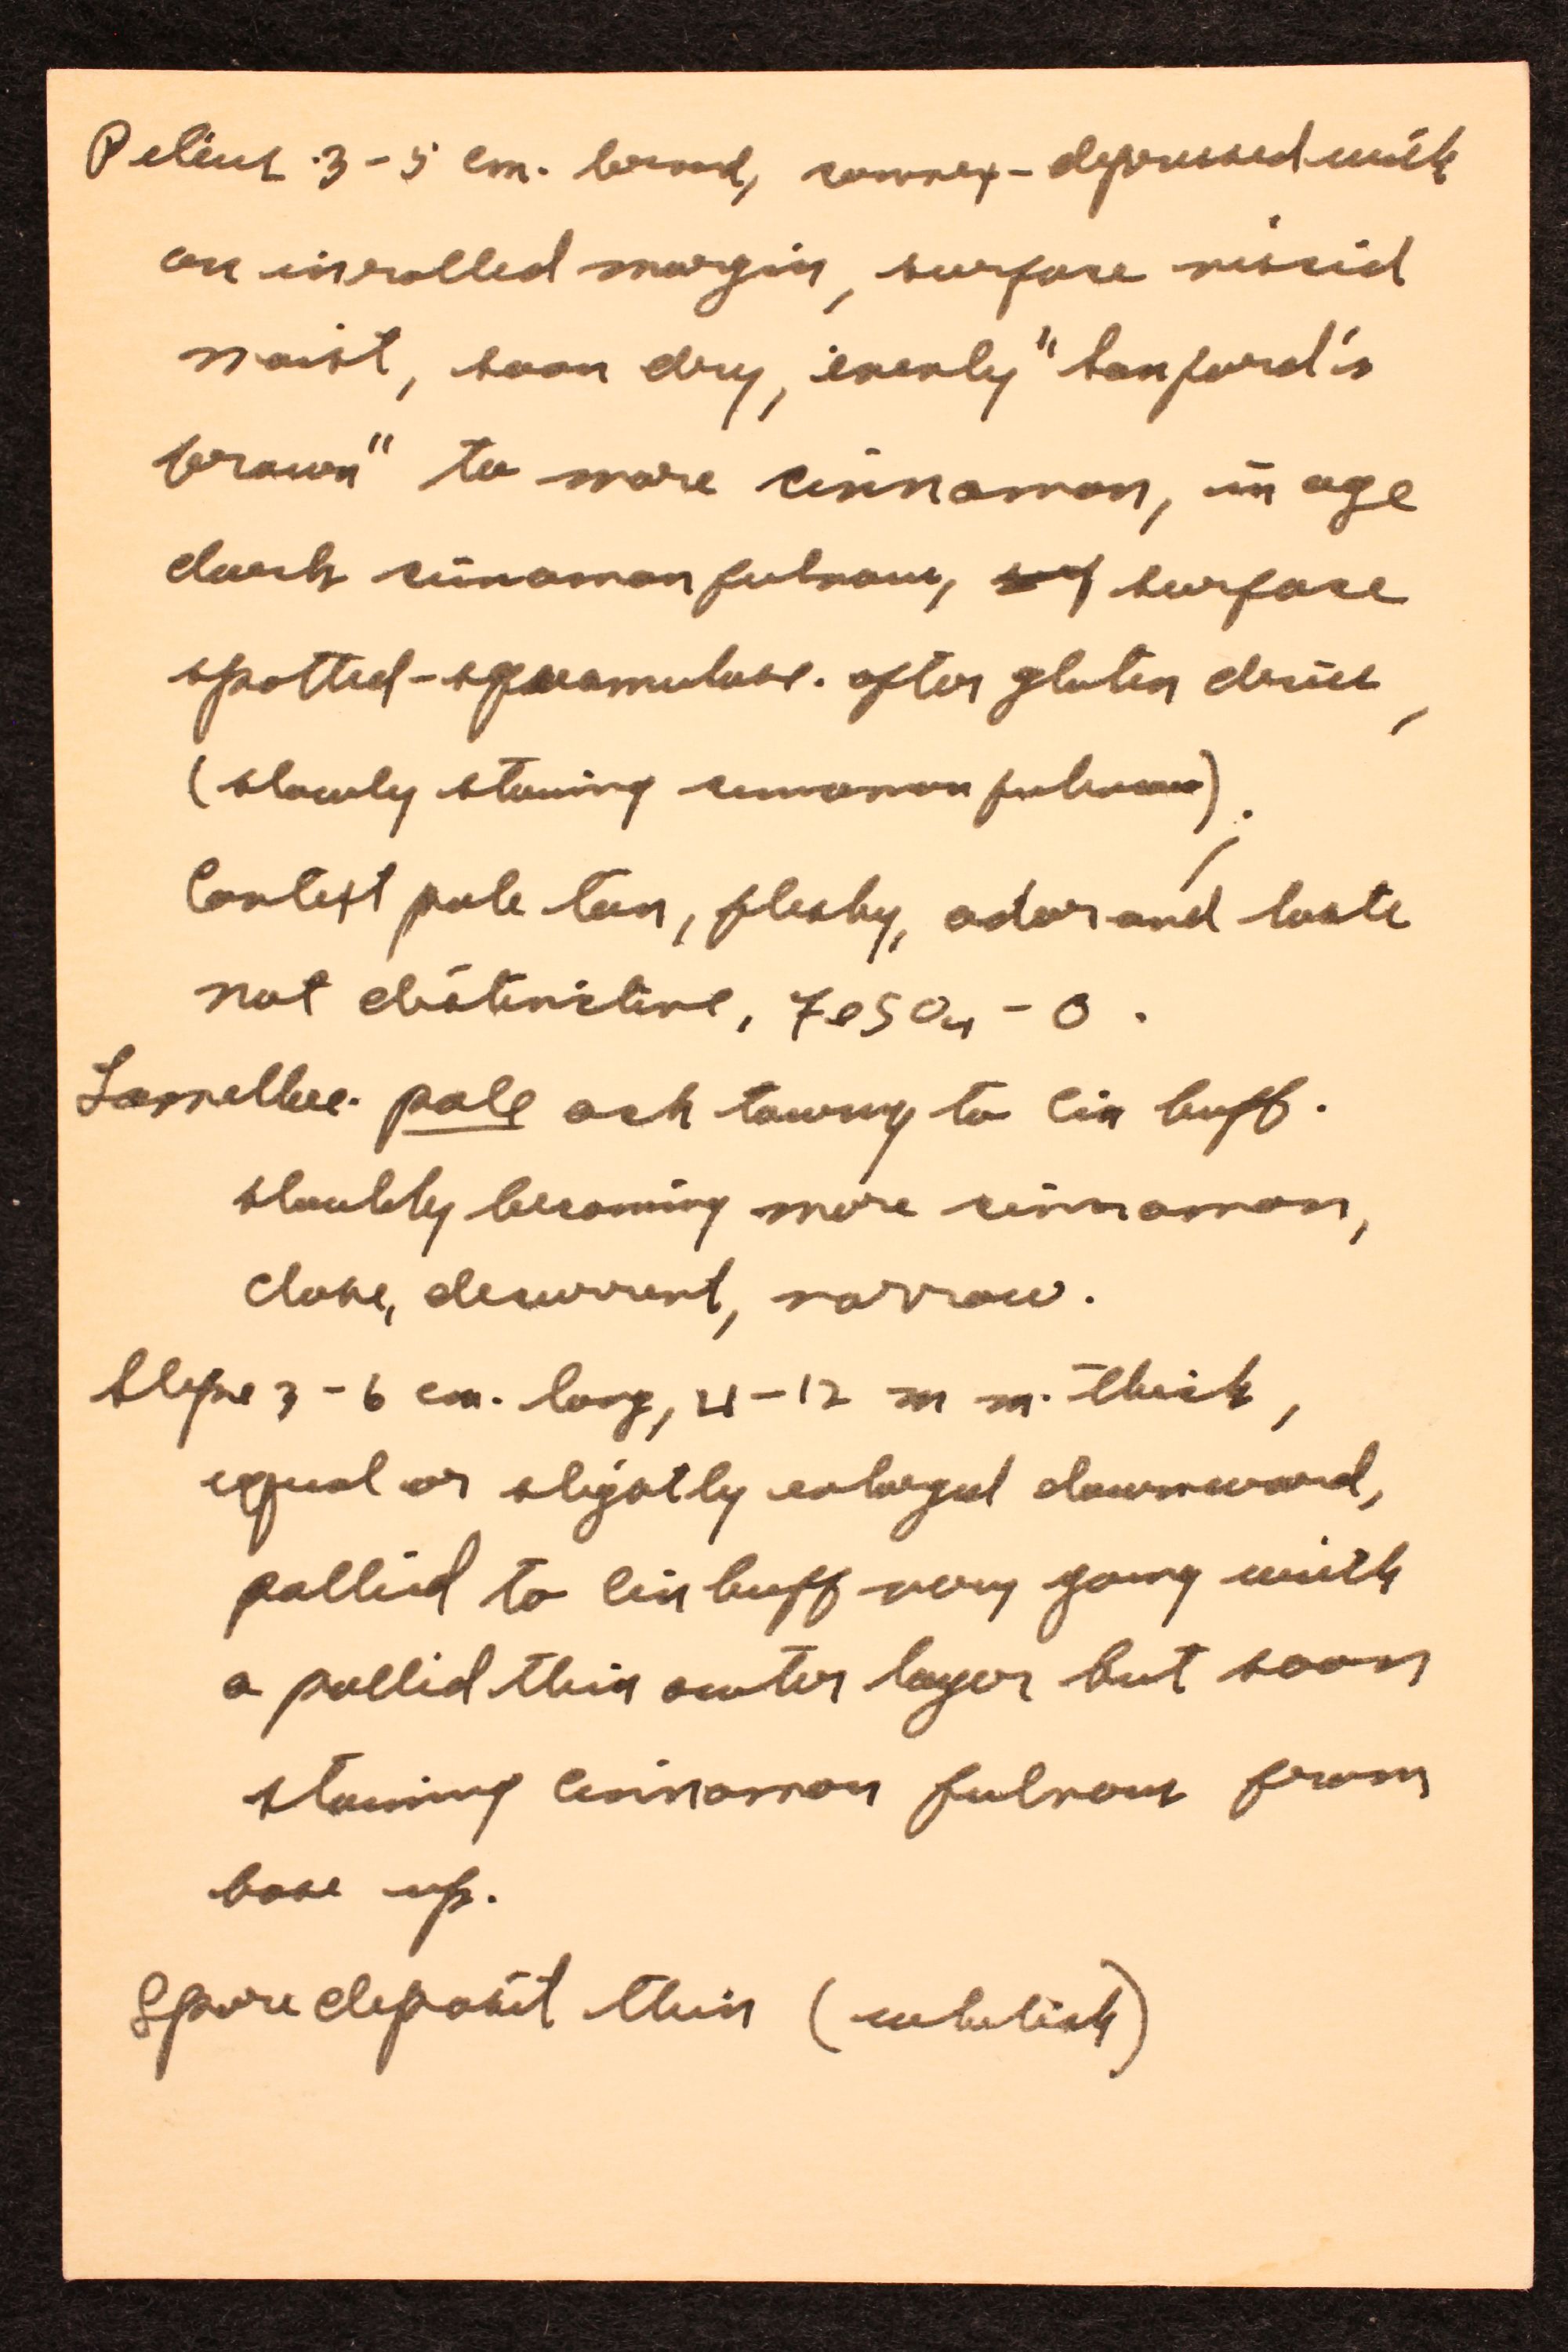 Pileus 3-5 cm. broad, convex-depressed with
an inrolled margin, surface viscid
moist, soon dry, evenly "sanford's
brown" to more cinnamon, in age
dark cinnamon fulvous, surface
spotted-squamulose. after gluten dries,
(slowly staining cinnamon fulvous).
Context pale tan, fleshy, odor and taste
not distinctive, FeSO4 - 0.
Lamellae pale och tawny to cin buff.
slowly becoming more cinnamon,
close, decurrent, narrow.
Stipe 3-6 cm. long, 4-12 m m. thick,
equal or slightly enlarged downward,
pallid to cin buff very young with
a pallid thin outer layer but soon
staining cinnamon fulvous from
base up.
Spore deposit thin (whitish)